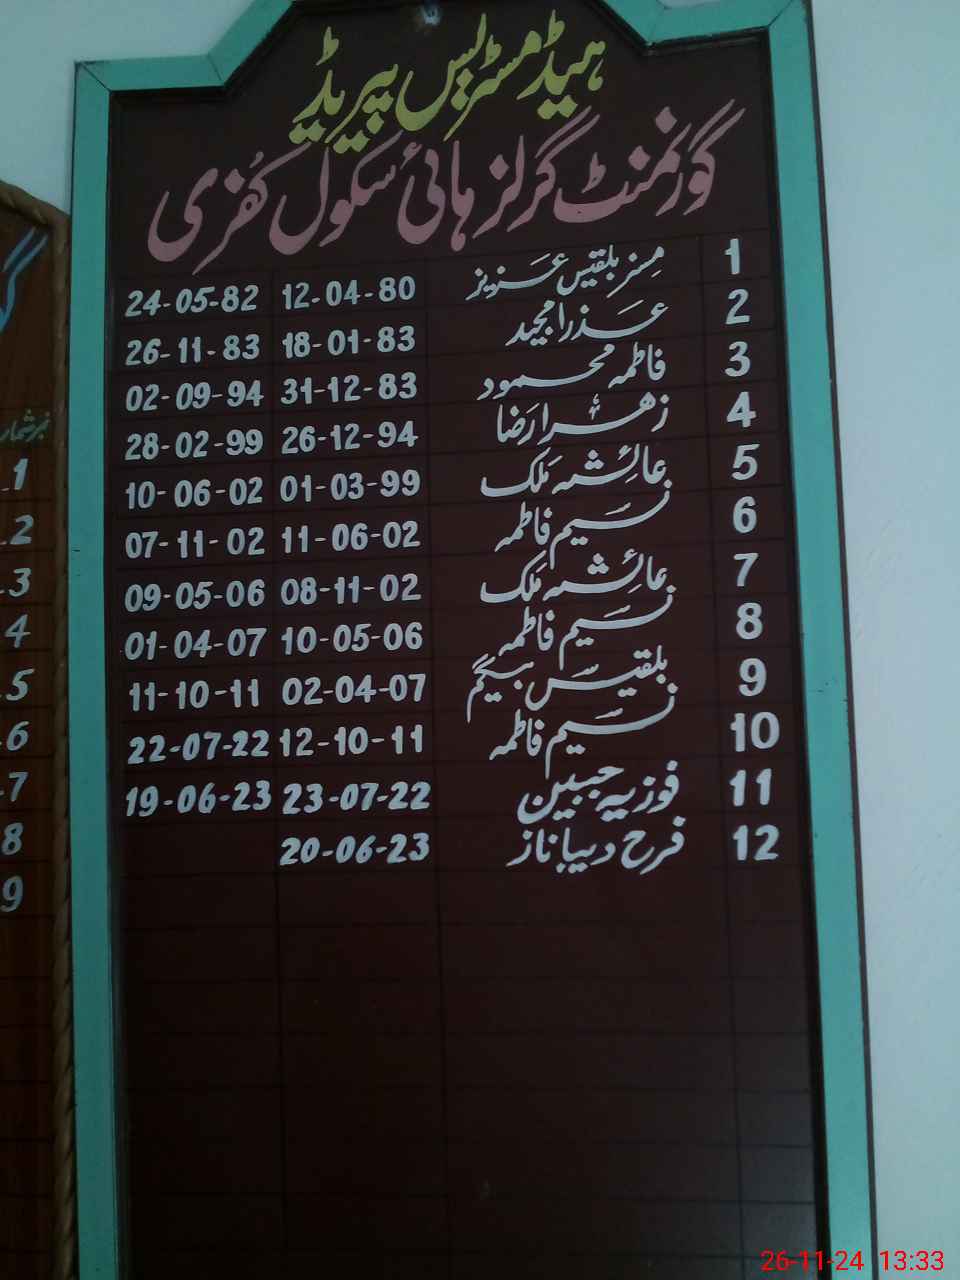 ہیڈ مسٹریس پیریڈ
گورنمنٹ گرلز ہائی سکول کفری
1 مسز بلقیس عزیز 12-04-80 24-05-82
2 عذرا مجید 18-01-83 26-11-83
3 فاطمہ محمود 31-12-83 02-09-94
4 زھرا رضا 26-12-94 28-02-99
5 عائشہ ملک 01-03-99 10-06-02
6 نسیم فاطمہ 11-06-02 07-11-02
7 عائشہ ملک 08-11-02 09-05-06
8 نسیم فاطمہ 10-05-06 01-04-07
9 بلقیس بیگم 02-04-07 11-10-11
10 نسیم فاطمہ 12-10-11 22-07-22
11 فوزیہ جبین 23-07-22 19-06-23
12 فرح دیبا ناز 20-06-23
نمبر شمار
1
2
3
4
5
6
7
8
9
26-11-24 13:33